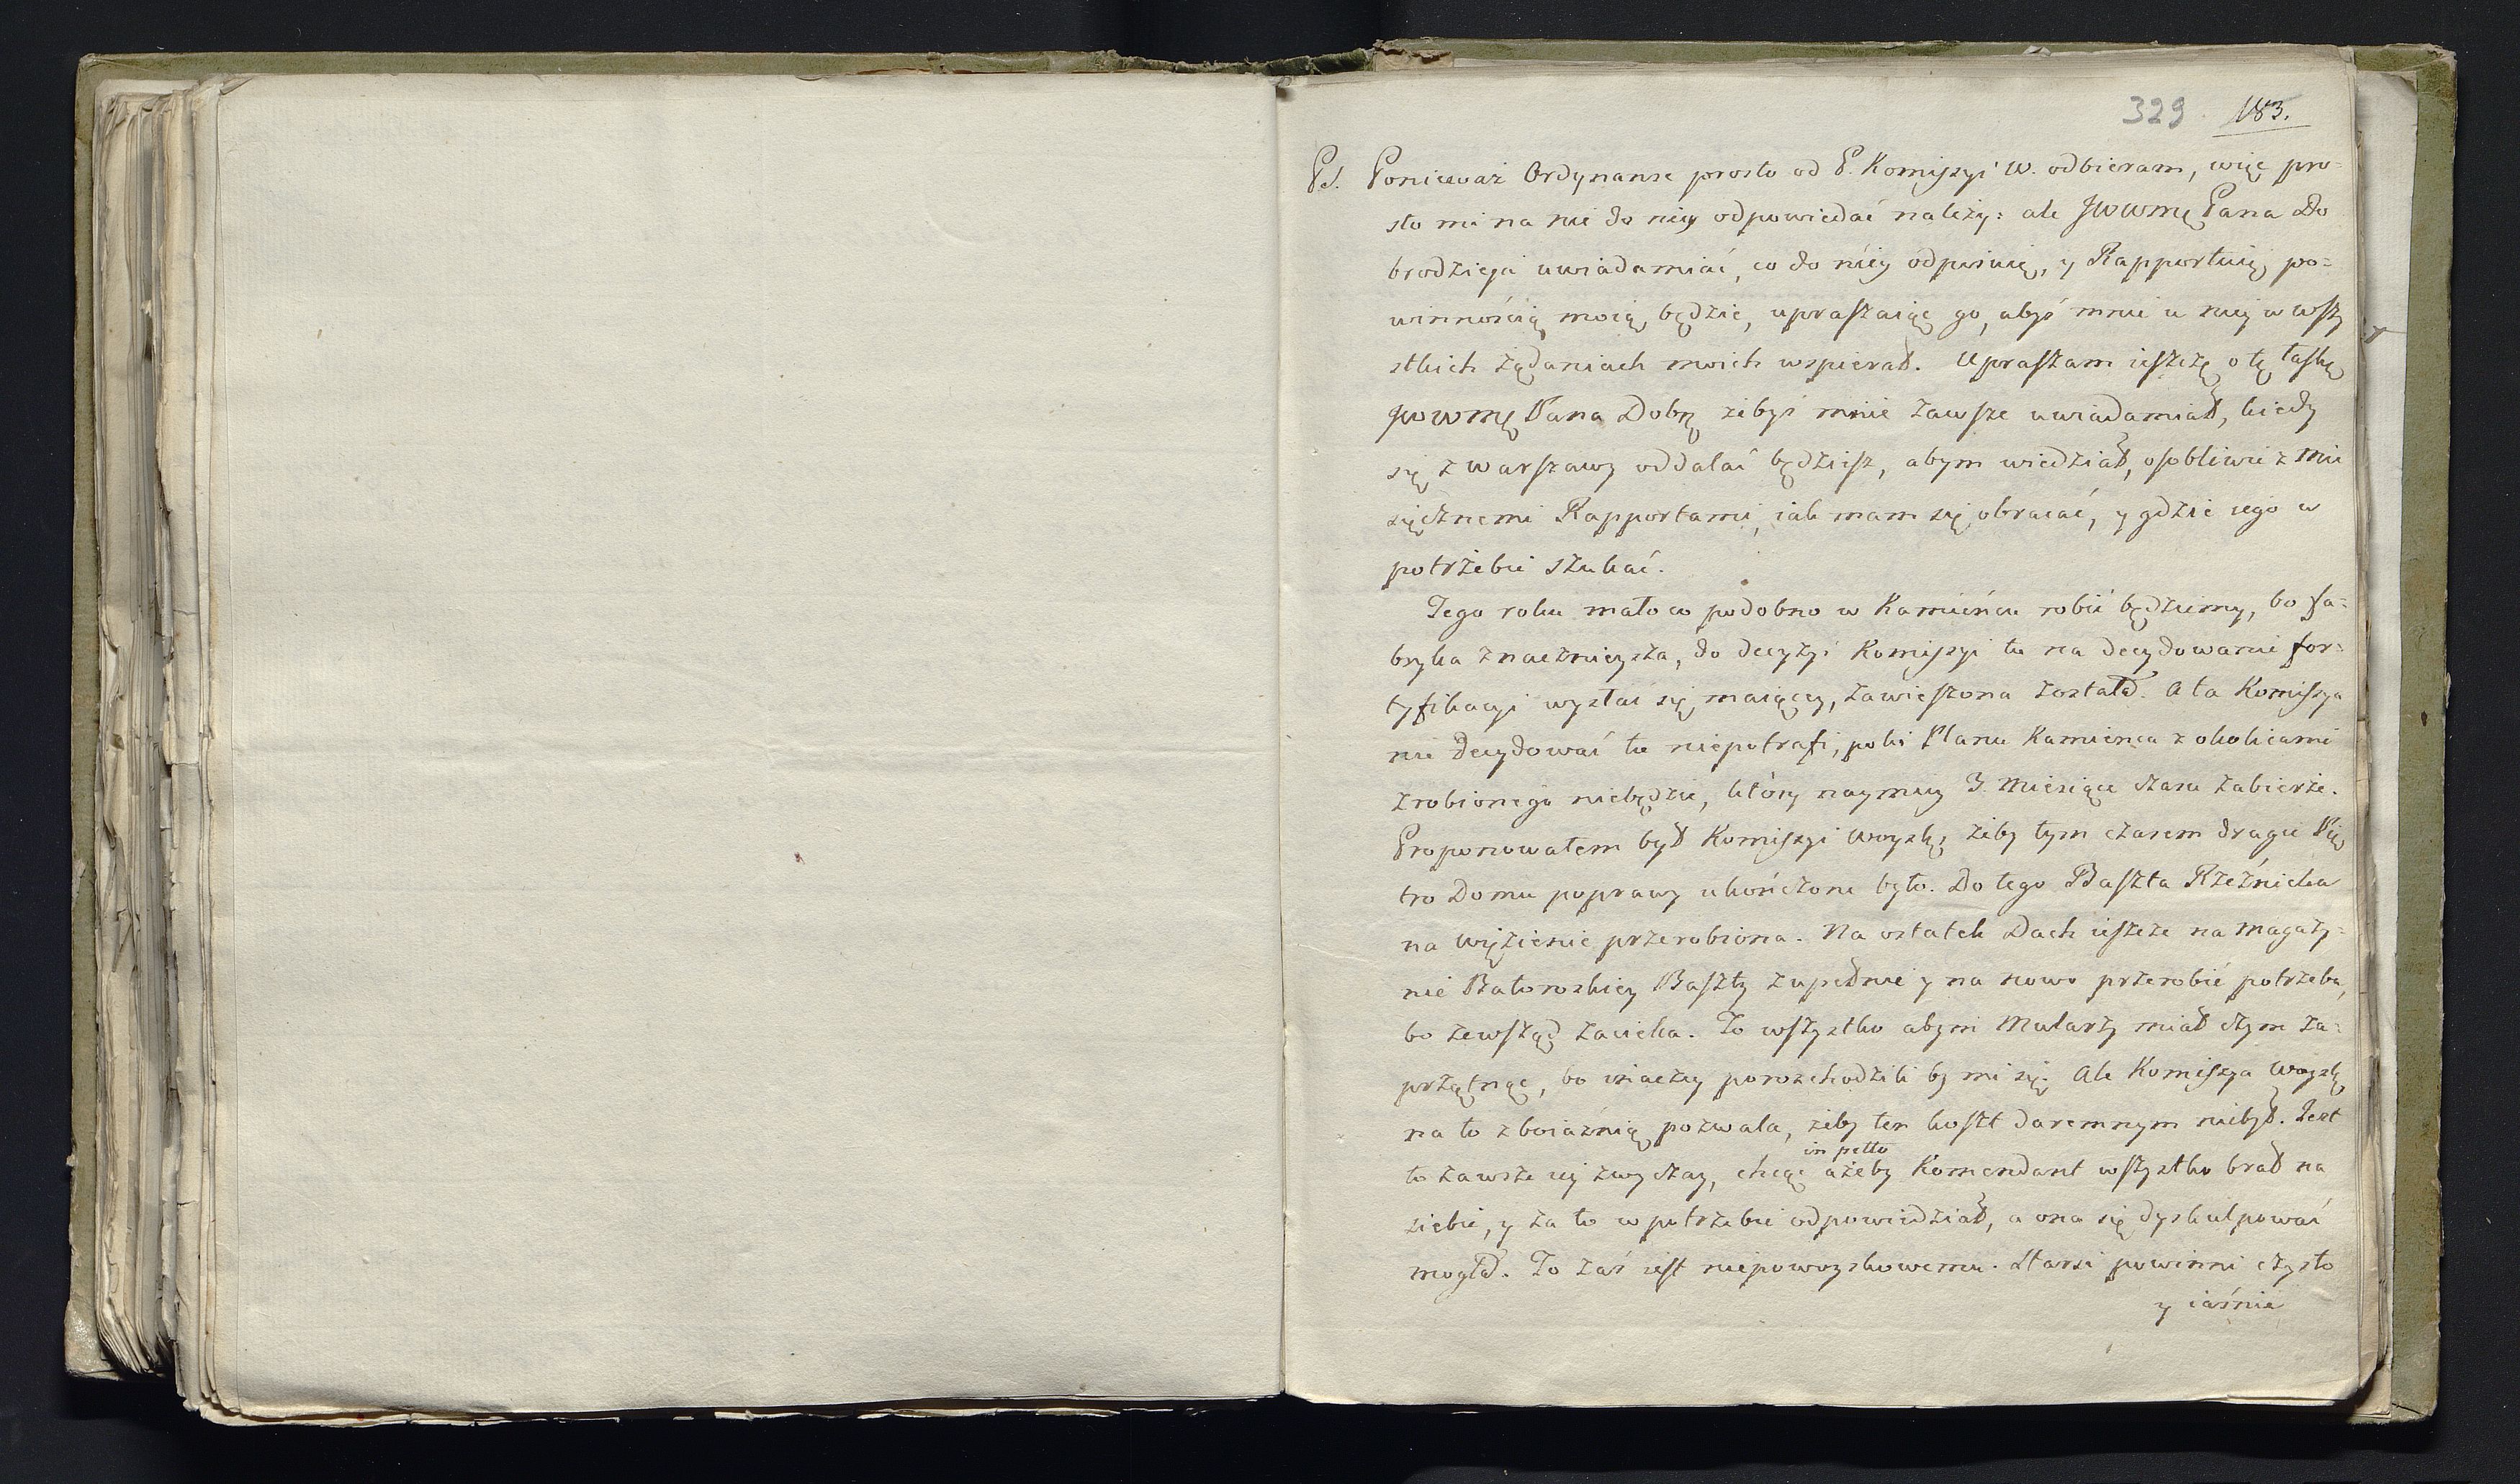 329 183.
Ps. Ponieważ Ordynanse prosto od P. Komiſzyi W. odbieram, więc pro=
sto mi na nie do niey odpowiedać należy: ale JWWmę Pana Do
brodzieja uwiadamiać, co do niéy odpiszię, y Rapportuię, po=
winnością moią będzie, upraſzaiąc go, abyś mnie u niey w wſzy
stkich żądaniach moich wspierał. Upraſzam ieſzczę o tę łaſkę
JWWmę Pana Dobrę żebyś mnie zawſze uwiadamiał, kiedy
się z Warſzawy oddalać będzieſz, abym wiedział, oſobliwie z mie
sięcznemi Rapportami, iak mam się obracać, y gdzie iego w
potrzebie szukać.
Tego roku mało co podobno w Kamieńcu robić będziemy, bo fa=
bryka znacznieysza, do decyzyi Komiſzyi tu na decydowanie for=
tyfikacyi wysłać się maiącey, zawieſzona została. A ta Komiſzya
nie decydować tu niepotrafi, poki Planu Kamienca z okolicami
zrobionego niebędzie, który naymniey 3. Miesiące czasu zabierże.
Proponowałem był Komiſzyi Woyskę, żeby tym czasem drugie Pię
tro Domu poprawy ukończone było. Do tego Baſzta Rzeźnicka
na więzienie przerobiona. Na ostatek Dach ieſzcze na Magazy=
nie Batoroskiey Baſzty zupełnie y na nowo przerobić potrzeba,
bo zewſząd zacieka. To wſzystko abym Mularzy miał czym za=
przątnąć, bo inaczey porozchodzili by mi się. Ale Komiſzya Woyskę
na to z boiaznią pozwala, żeby ten koſzt daremnym niebył. Jest
in petto
to zawsze iey zwyczay, chcąc ażeby Komendant wſzystko brał na
siebie, y za to w potrzebie odpowiedział, a ona się dyskulpować
mogła. To zaś iest niepowoyskowemu. Starsi powinni czysto
y iaśnie